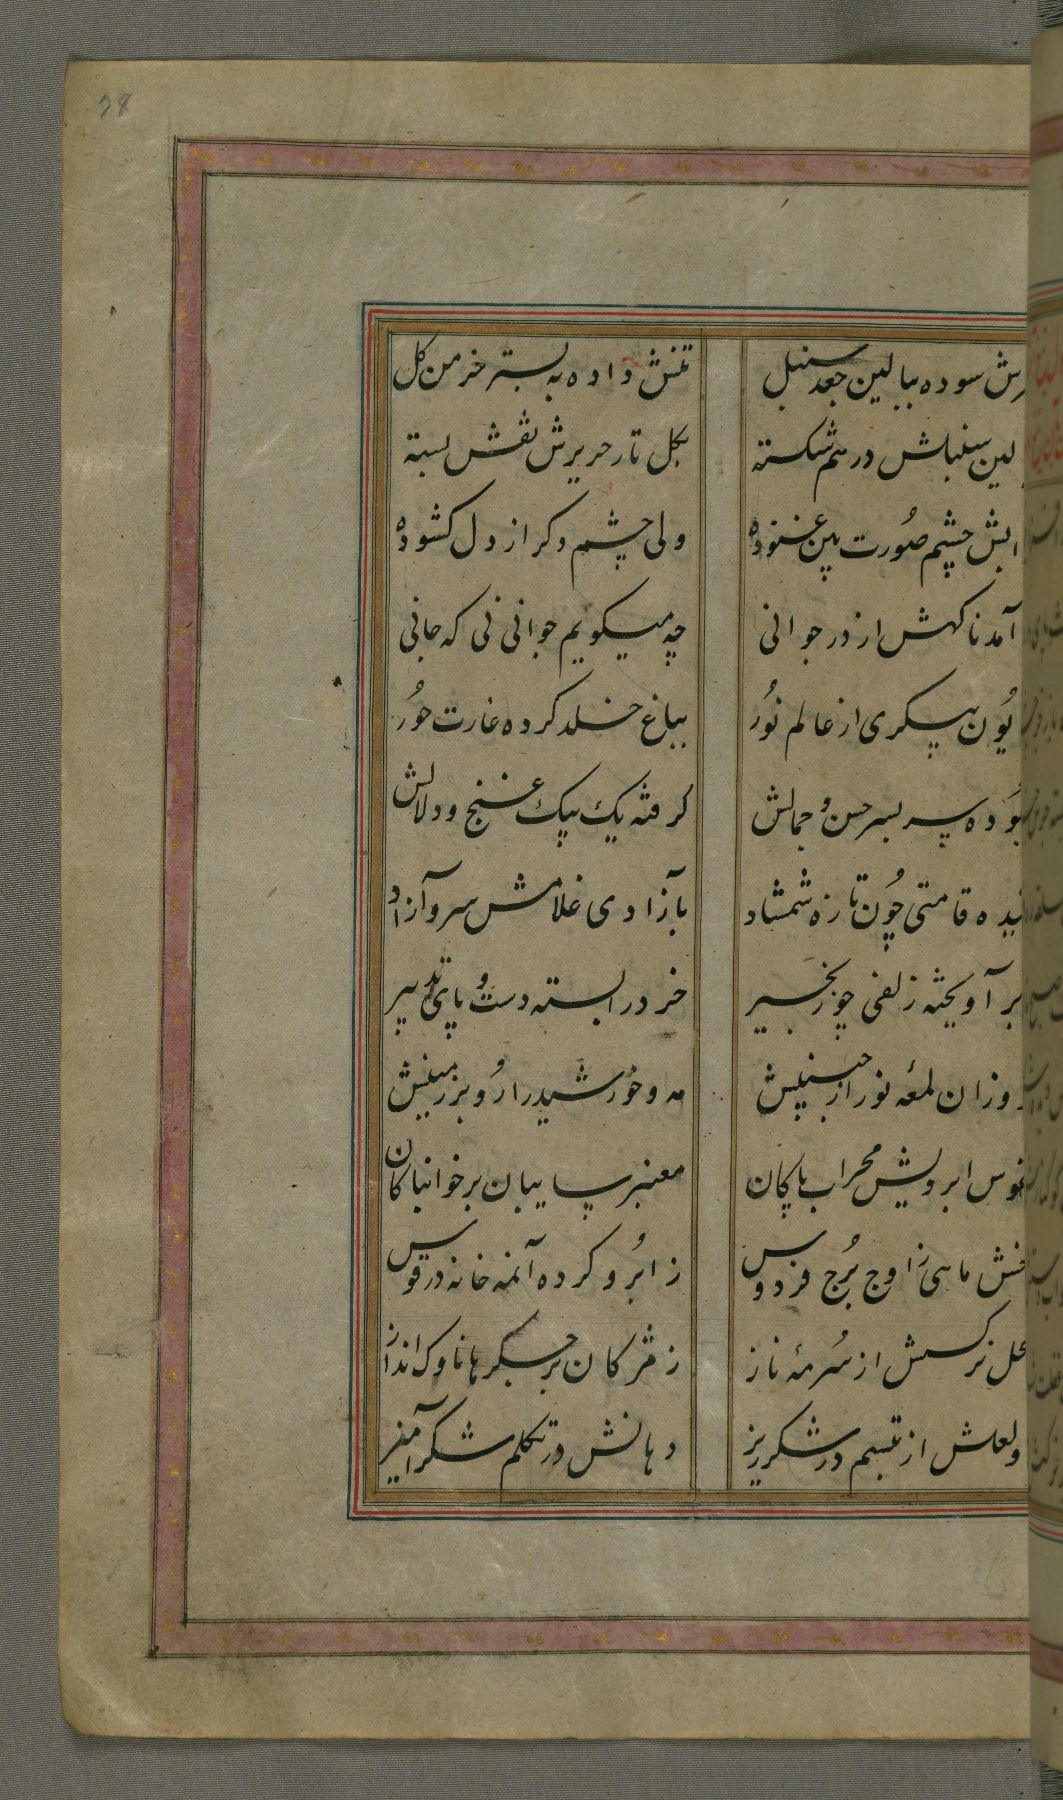 28
سوده ببالین جعد سنبل
تنش داده به بستر خرمن کل
سنبلش در هم شکسته
بکل تار حریرش نقش بسته
چشم صورت بین غنوده
ولی چشم دکر از دل کشوده
آمد ناکهش از در جوانی
چه میکویم جوانی نی که جانی
پیکری از عالم نور
بباغ خلد کرده غارت حور
سر بسر حسن و جمالش
کرفته یک بیک غنج و دلالش
قامتی چون تازه شمشاد
بآزادی غلامش سرو آزاد
بر آویخته زلفی چو زنجیر
خرد را بسته دست و پای تدبیر
لمعه نور از جبینش
مه و خورشید را رو بر زمینش
ابرویش محراب پاکان
معنبر سایبان بر خوابناکان
ماهی ز اوج برج فردوس
ز ابرو کرده آنمه خانه در قوس
نرکسش از سرمهٔ ناز
ز مژکان بر جکرها ناوک انداز
ولعلش از تبسم در شکرریز
دهانش در تکلم شکر آمیز